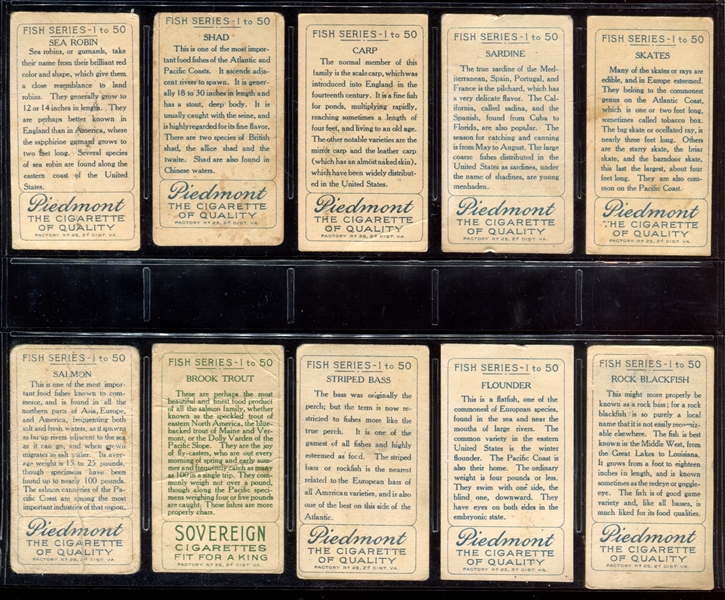 FISH SERIES-1 to 50
SEA ROBIN
Sea robins, or gurnards, take
their name from their brilliant red
color and shape, which give them
a close resemblance to land
robins. They generally grow to
12 or 14 inches in length. They
are perhaps better known in
England than in America, where
the sapphirine gurnard grows to
two feet long. Several species
of sea robin are found along the
eastern coast of the United
States.
Piedmont
THE CIGARETTE
OF QUALITY
FACTORY Nº 25, 2ᵈ DIST. VA.
FISH SERIES-1 to 50
SHAD
This is one of the most impor-
tant food fishes of the Atlantic and
Pacific Coasts. It ascends adja-
cent rivers to spawn. It is gener-
ally 18 to 30 inches in length and
has a stout, deep body. It is
usually caught with the seine, and
is highly regarded for its fine flavor.
There are two species of British
shad, the allice shad and the
twaite. Shad are also found in
Chinese waters.
Piedmont
THE CIGARETTE
OF QUALITY
FACTORY Nº 25, 2ᵈ DIST. VA.
FISH SERIES-1 to 50
CARP
The normal member of this
family is the scale carp, which was
introduced into England in the
fourteenth century. It is a fine fish
for ponds, multiplying rapidly,
reaching sometimes a length of
four feet, and living to an old age.
The other notable varieties are the
mirror carp and the leather carp
(which has an almost naked skin),
which have been widely distribut-
ed in the United States.
Piedmont
THE CIGARETTE
OF QUALITY
FACTORY Nº 25, 2ᵈ DIST. VA.
FISH SERIES-1 to 50
SARDINE
The true sardine of the Med-
iterranean, Spain, Portugal, and
France is the pilchard, which has
a very delicate flavor. The Cal-
ifornia, called sadina, and the
Spanish, found from Cuba to
Florida, are also popular. The
season for catching and canning
is from May to August. The large
coarse fishes distributed in the
United States as sardines, under
the name of shadines, are young
menhaden.
Piedmont
THE CIGARETTE
OF QUALITY
FACTORY Nº 25, 2ᵈ DIST. VA.
FISH SERIES-1 to 50
SKATES
Many of the skates or rays are
edible, and in Europe esteemed.
They belong to the commonest
genus on the Atlantic Coast,
which is one or two feet long,
sometimes called tobacco box.
The big skate or ocellated ray, is
nearly three feet long. Others
are the starry skate, the briar
skate, and the barndoor skate,
this last the largest, about four
feet long. They are also com-
mon on the Pacific Coast.
Piedmont
THE CIGARETTE
OF QUALITY
FACTORY Nº 25, 2ᵈ DIST. VA.
FISH SERIES-1 to 50
SALMON
This is one of the most impor-
tant food fishes known to com-
merce, and is found in all the
northern parts of Asia, Europe,
and America, frequenting both
salt and fresh waters, as it spawns
as far up rivers adjacent to the sea
as it can go, and when grown
migrates to salt water. Its aver-
age weight is 15 to 25 pounds,
though specimens have been
found up to nearly 100 pounds.
The salmon canneries of the Pa-
cific Coast are among the most
important industries of that region.
Piedmont
THE CIGARETTE
OF QUALITY
FACTORY Nº 25, 2ᵈ DIST. VA.
FISH SERIES-1 to 50
BROOK TROUT
These are perhaps the most
beautiful and finest food product
of all the salmon family, whether
known as the speckled trout of
eastern North America, the blue-
backed trout of Maine and Ver-
mont, or the Dolly Varden of the
Pacific Slope. They are the joy
of fly-casters, who are out every
morning of spring and early sum-
mer and frequently catch as many
as 100 in a single trip. They com-
monly weigh not over a pound,
though along the Pacific speci-
mens weighing four or five pounds
are caught. These fishes are more
properly chars.
SOVEREIGN
CIGARETTES
FIT FOR A KING
FACTORY Nº 25, 2ᵈ DIST. VA.
FISH SERIES-1 to 50
STRIPED BASS
The bass was originally the
perch; but the term is now re-
stricted to fishes more like the
true perch. It is one of the
gamest of all fishes and highly
esteemed as food. The striped
bass or rockfish is the nearest
related to the European bass of
all American varieties, and is also
one of the best on this side of the
Atlantic.
Piedmont
THE CIGARETTE
OF QUALITY
FACTORY Nº 25, 2ᵈ DIST. VA.
FISH SERIES-1 to 50
FLOUNDER
This is a flatfish, one of the
commonest of European species,
found in the sea and near the
mouths of large rivers. The
common variety in the eastern
United States is the winter
flounder. The Pacific Coast is
also their home. The ordinary
weight is four pounds or less.
They swim with one side, the
blind one, downward. They
have eyes on both sides in the
embryonic state.
Piedmont
THE CIGARETTE
OF QUALITY
FACTORY Nº 25, 2ᵈ DIST. VA.
FISH SERIES-1 to 50
ROCK BLACKFISH
This might more properly be
known as rock bass; for a rock
blackfish is so purely a local
name that it is not easily recogniz-
able elsewhere. The fish is best
known in the Middle West, from
the Great Lakes to Louisiana.
It grows from a foot to eighteen
inches in length, and is known
sometimes as the redeye or goggle-
eye. The fish is of good game
variety and, like all basses, is
much liked for its food qualities.
Piedmont
THE CIGARETTE
OF QUALITY
FACTORY Nº 25, 2ᵈ DIST. VA.